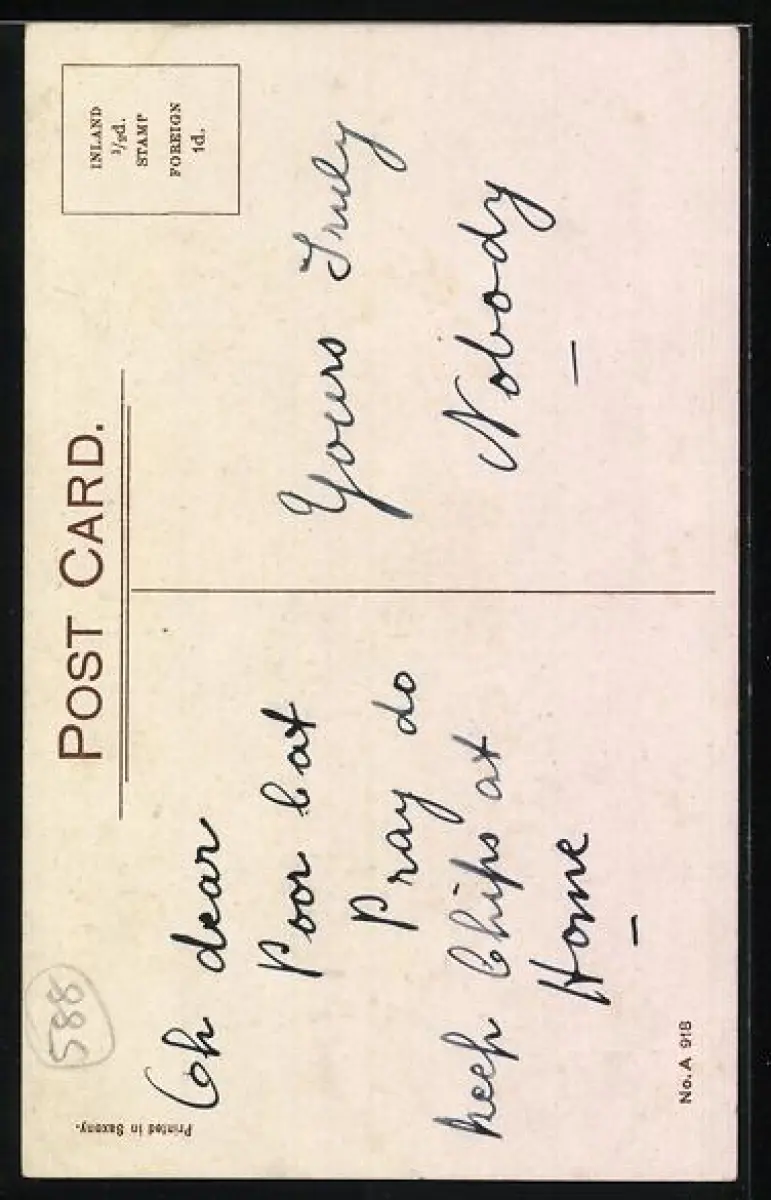 POST CARD.
INLAND
½d.
STAMP
FOREIGN
1d.
588
Oh dear
Poor Cat
Pray do
keep Chips at
Home
Yours Truly
Nobody
Printed in Saxony.
No. A 918